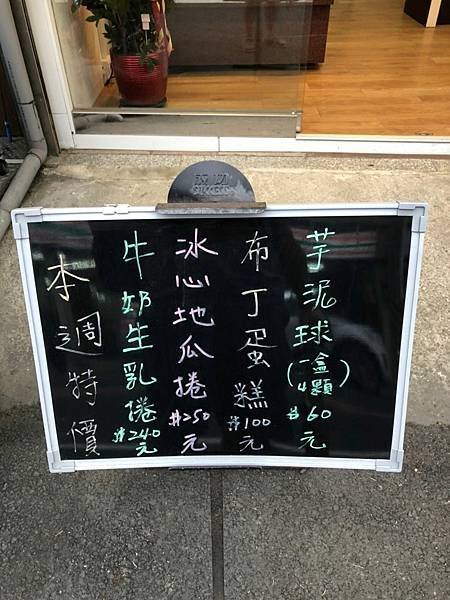 本週特價
牛奶生乳捲 $240元
冰心地瓜捲 $250元
布丁蛋糕 $100元
芋泥球(一盒4顆) $60元